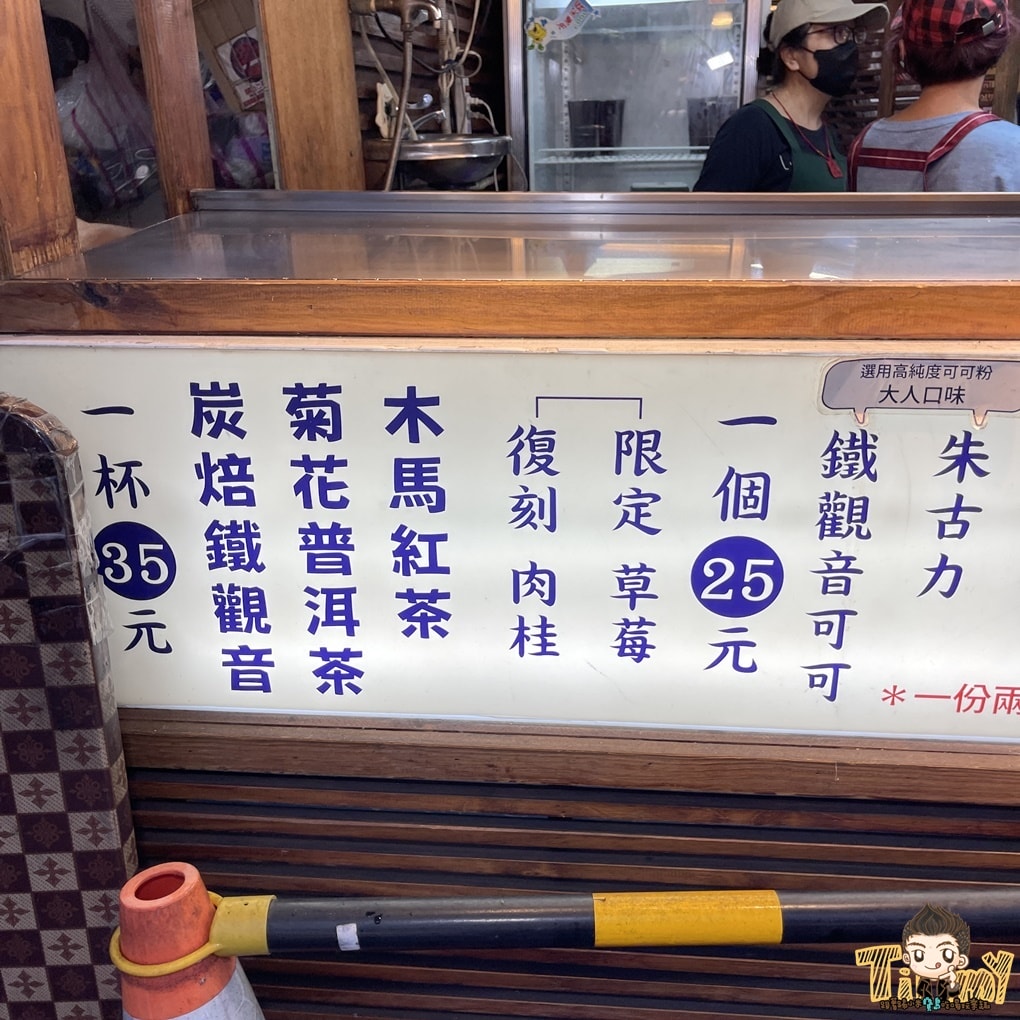 選用高純度可可粉
大人口味
朱古力
鐵觀音可可
一個25元
限定 草莓
復刻 肉桂
木馬紅茶
菊花普洱茶
炭焙鐵觀音
一杯35元
*一份兩